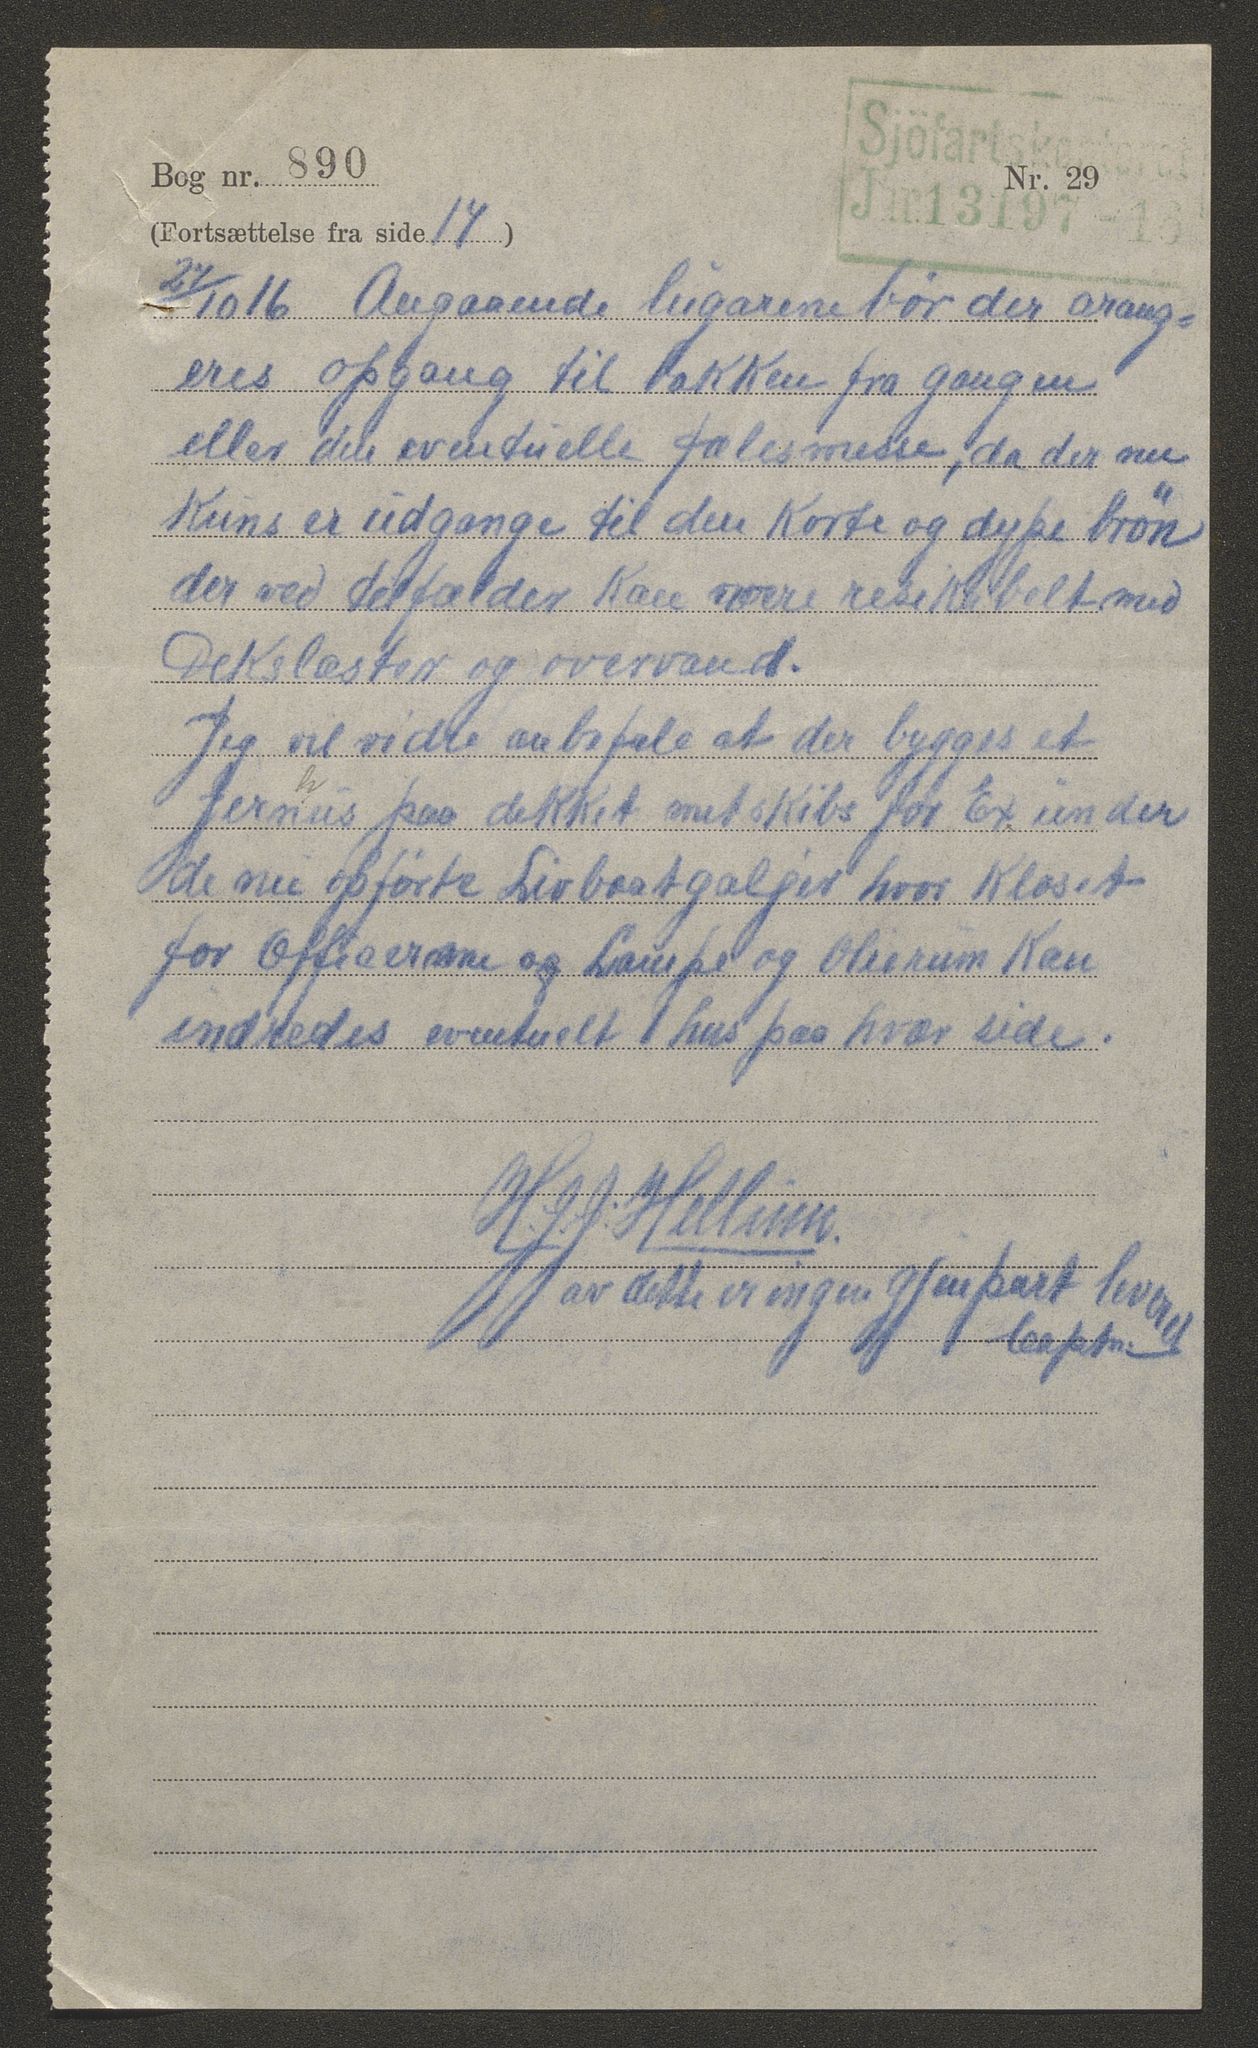 Sjöfartskontoret
Bog nr. 890 Nr. 29
J.n. 13197 - 16
(Fortsættelse fra side 17)
27/10 16 Angaaende lugarene bör der arang=
eres opgang til bakken fra gangen
eller den eventuelle fælesmesse, da der nu
kuns er udgange til den korte og dype brön
der ved tilfælder kan være resikabelt med
Dekslaster og overvand.
Jeg vil vidre anbefale at der bygges et
Jernhus paa dekket metskibs for Ex. under
de nu opførte Livbaatgalger hvor Kloset
for Officererne og Lampe og Olierum kan
indredes eventuelt 1 hus paa hver side.
Hellinn.
av dette er ingen gjenpart leveret
Captn.